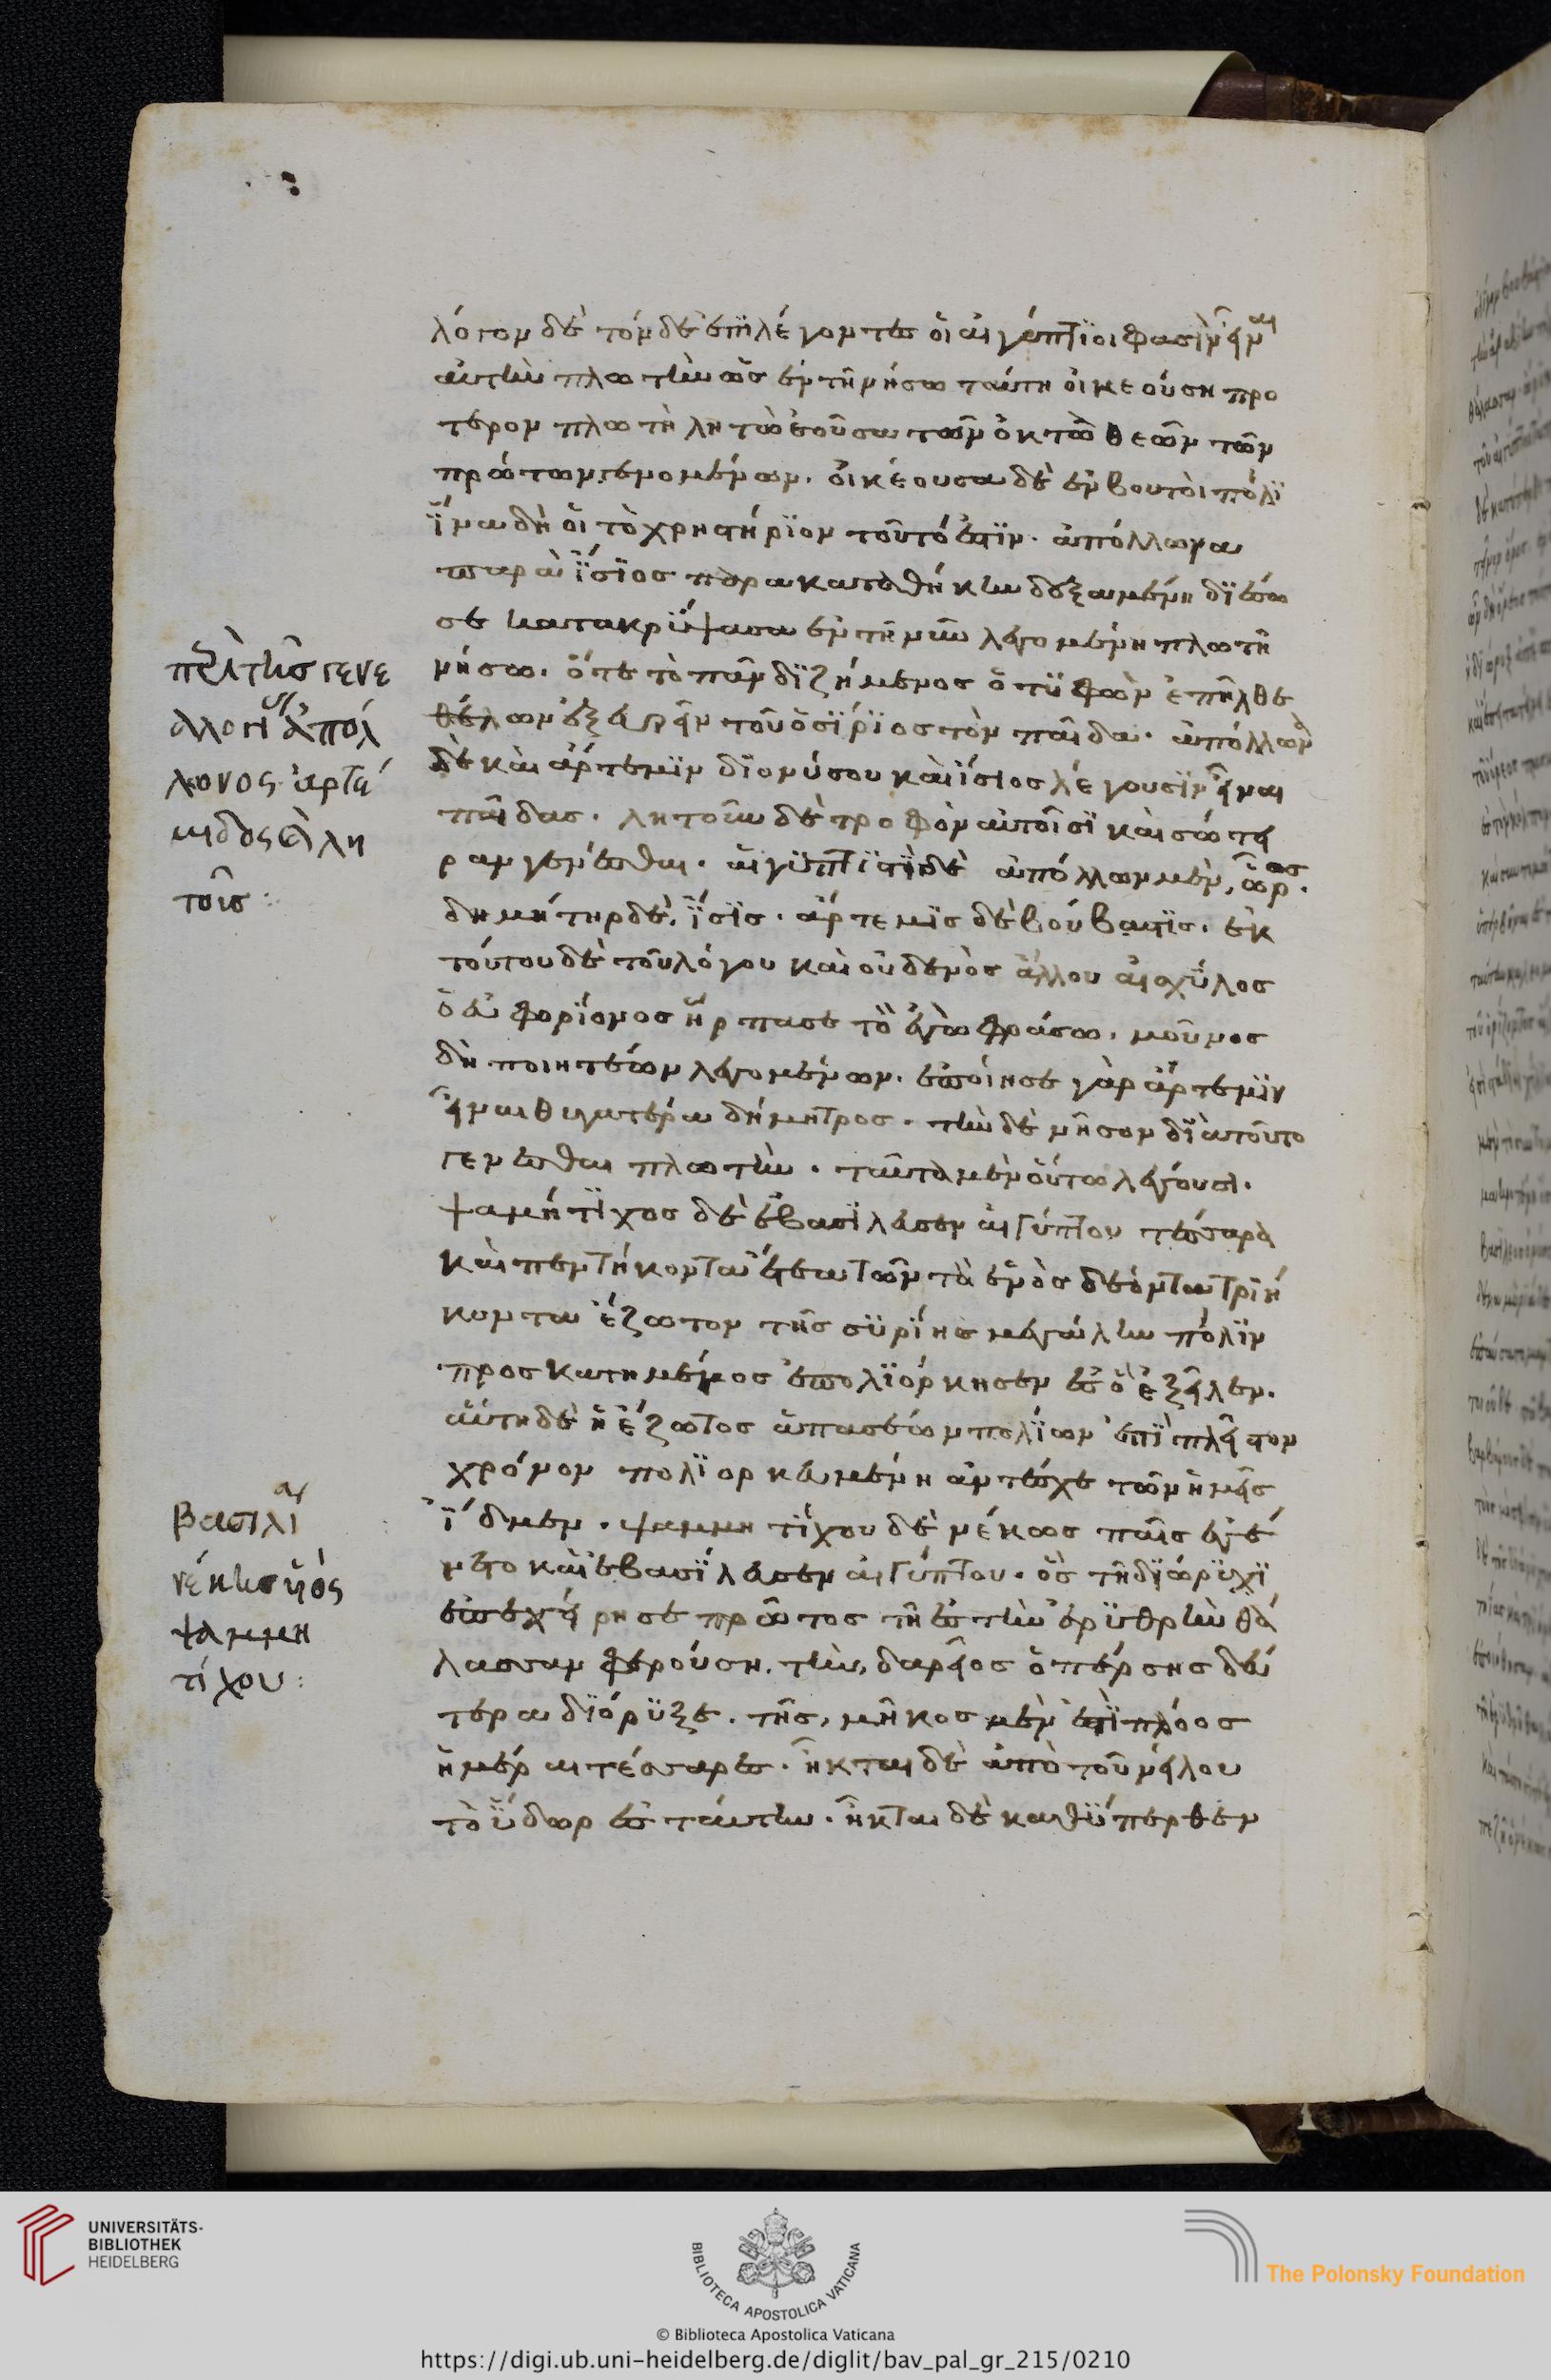 λόγον δὲ τόνδε ἐπϊλέγοντες ὁι ἀιγύπτϊοι φασὶν εἶναι
ἀυτὴν πλωτὴν ὡς ἐν τῆ νήσω ταύτη ὀικεούση προ
τερον πλωτῆ λητὼ ἐοῦσα τῶν ὀκτὼ θεῶν τῶν
πρώτων γενομένων. ὀικέουσα δὲ ἐν βουτοῖ πόλϊ
ἵ̈να δὴ ὁι τὸ χρηστήρϊον τοῦτό ἐστϊν. ἀπόλλωνα
παρὰ ἴ̈σϊος παρακαταθήκην δεξαμένη δϊέσω
σε κατακρύ̈ψασα ἐν τῆ νῦν λεγομένη πλωτῆ
νήσω. ὅτε τὸ πᾶν δϊζήμενος ὁ τϋφὼν ἐπῆλθε
θέλων ἐξευρεῖν τοῦ ὀσϊρϊος τὸν παῖδα. ἀπόλλωνα
δὲ καὶ ἄρτεμϊν δϊονύσου καὶ ἴσιος λέγουσϊν εἶναι
παῖδας. λητοῦν δὲ τροφὸν ἀυτοῖσϊ καὶ σώτει
ραν γενέσθαι. ἀιγϋπτϊστὶ δὲ ἀπόλλων μὲν, ὦρος.
δημήτηρ δὲ, ἴ̈σϊς. ἄρτεμϊς δὲ βούβαστϊς. ἐκ
τούτου δὲ τοῦ λόγου καὶ οὐδενὸς ἄλλου ἀισχύ̈λος
ὁ ἐυφορίωνος ἥρπασε τὸ ἐγὼ φράσω. μοῦνος
δὴ ποιητέων λεγομένων. ἐποίησε γὰρ ἄρτεμϊν
εἶναι θυγατέρα δήμητρος. τὴν δὲ νῆσον δϊὰ τοῦτο
γενέσθαι πλωτὴν. ταῦτα μὲν οὕτω λέγουσι.
ψαμήτϊχος δὲ ἐβασϊλευσεν ἀιγύπτου τέσσαρα
καὶ πεντήκοντα ἔτεα τῶν τὰ ἑνὸς δέοντα τριή
κοντα ἔζωτον τῆς σϋρίης μεγάλην πόλϊν
προσκατημένος ἐπολϊόρκησεν ἐς ὃ ἐξεῖλεν.
ἅυτη δὲ ἡ ἔζωτος ἁπασέων πολϊων ἐπὶ πλεῖστον
χρόνον πολϊορκευμένη ἀντέσχε τῶν ἡμεῖς
ἴ̈δμεν. ψαμμητίχου δὲ νέκως παῖς ἐγέ
νετο καὶ ἐβασϊλευσεν ἀιγύπτου. ὃς τῆ δϊώρϋχϊ
ἐπεχείρησε πρῶτος τῆ ἐς τὴν ἐρϋθρὴν θά
λασσαν φερούση. τὴν, δαρεῖος ὁ πέρσης δεύ
τερα δϊόρϋξε. τῆς, μῆκος μὲν ἐστὶ πλόος
ἡμέραι τέσσαρες. ἦκται δὲ ἀπὸ τοῦ νείλου
τὸ ὕ̈δωρ ἐς ταύτην. ἦκται δὲ κατύ̈περθεν
περὶ τῆς γενε
αλογίας ἀπόλ
λωνος ἀρτέ
μιδος καὶ λη
τοῦς:
βασιλεία
νέκεω υἱὸς
ψαμμη
τίχου:
UNIVERSITÄTS-
BIBLIOTHEK
HEIDELBERG
BIBLIOTECA APOSTOLICA VATICANA
The Polonsky Foundation
© Biblioteca Apostolica Vaticana
https://digi.ub.uni-heidelberg.de/diglit/bav_pal_gr_215/0210